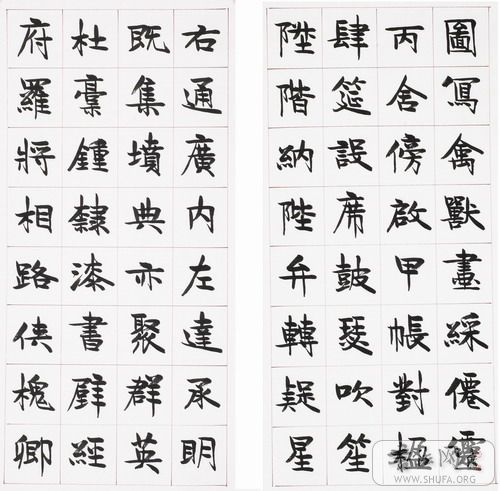 圖寫禽獸畫綵僊靈
丙舍傍啟甲帳對楹
肆筵設席鼓瑟吹笙
陞階納陛弁轉疑星
右通廣内左達承明
既集墳典亦聚群英
杜稾鍾隸漆書壁經
府羅將相路俠槐卿
WWW.SHUFA.ORG